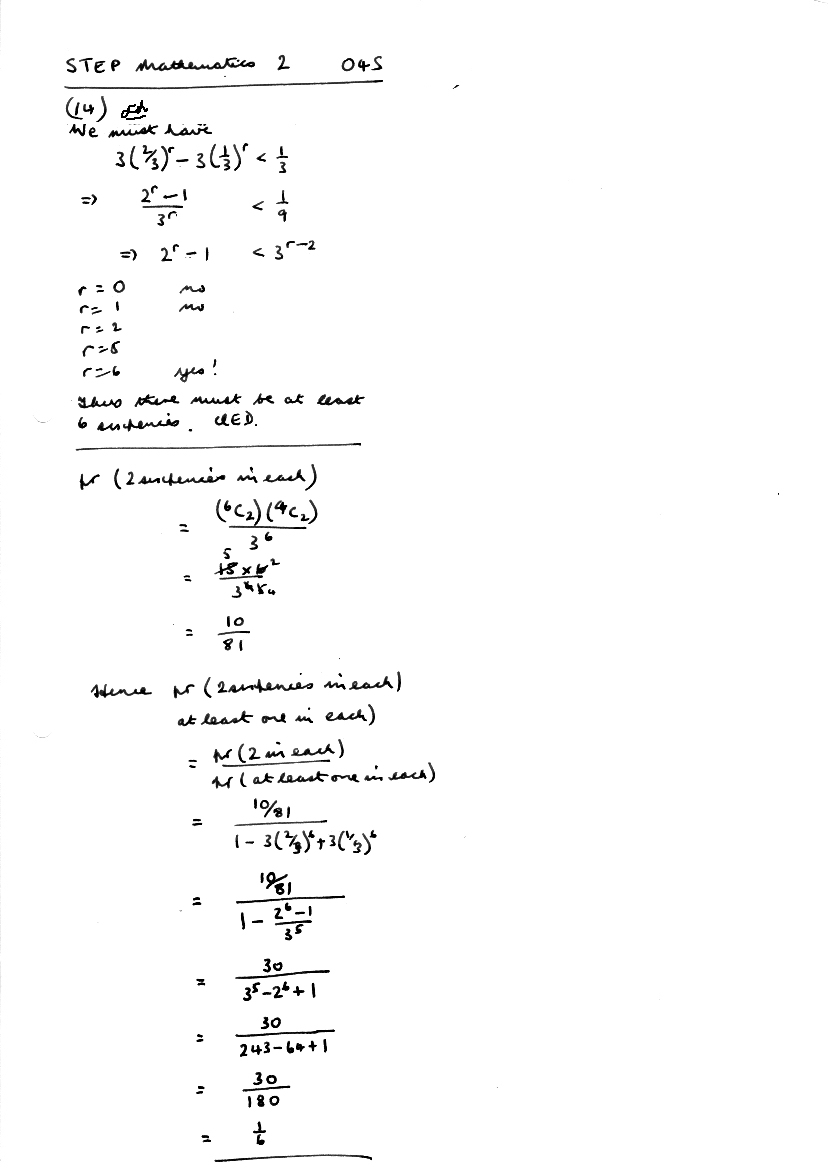 STEP Mathematics 2 04S
(14)
We must have
3(2/3)^r − 3(1/3)^r < 1/3
=> (2^r − 1)/3^r < 1/9
=> 2^r − 1 < 3^(r−2)
r = 0 no
r = 1 no
r = 2
r = 5
r = 6 yes!
Thus there must be at least
6 sentences. QED.
pr (2 sentences in each)
= (⁶C₂)(⁴C₂)/3^6
=
= 10/81
Hence pr (2 sentences in each)
at least one in each)
= pr (2 in each)/pr (at least one in each)
= (10/81)/(1 − 3(2/3)^6 + 3(1/3)^6)
= (10/81)/(1 − (2^6 − 1)/3^5)
= 30/(3^5 − 2^6 + 1)
= 30/(243 − 64 + 1)
= 30/180
= 1/6